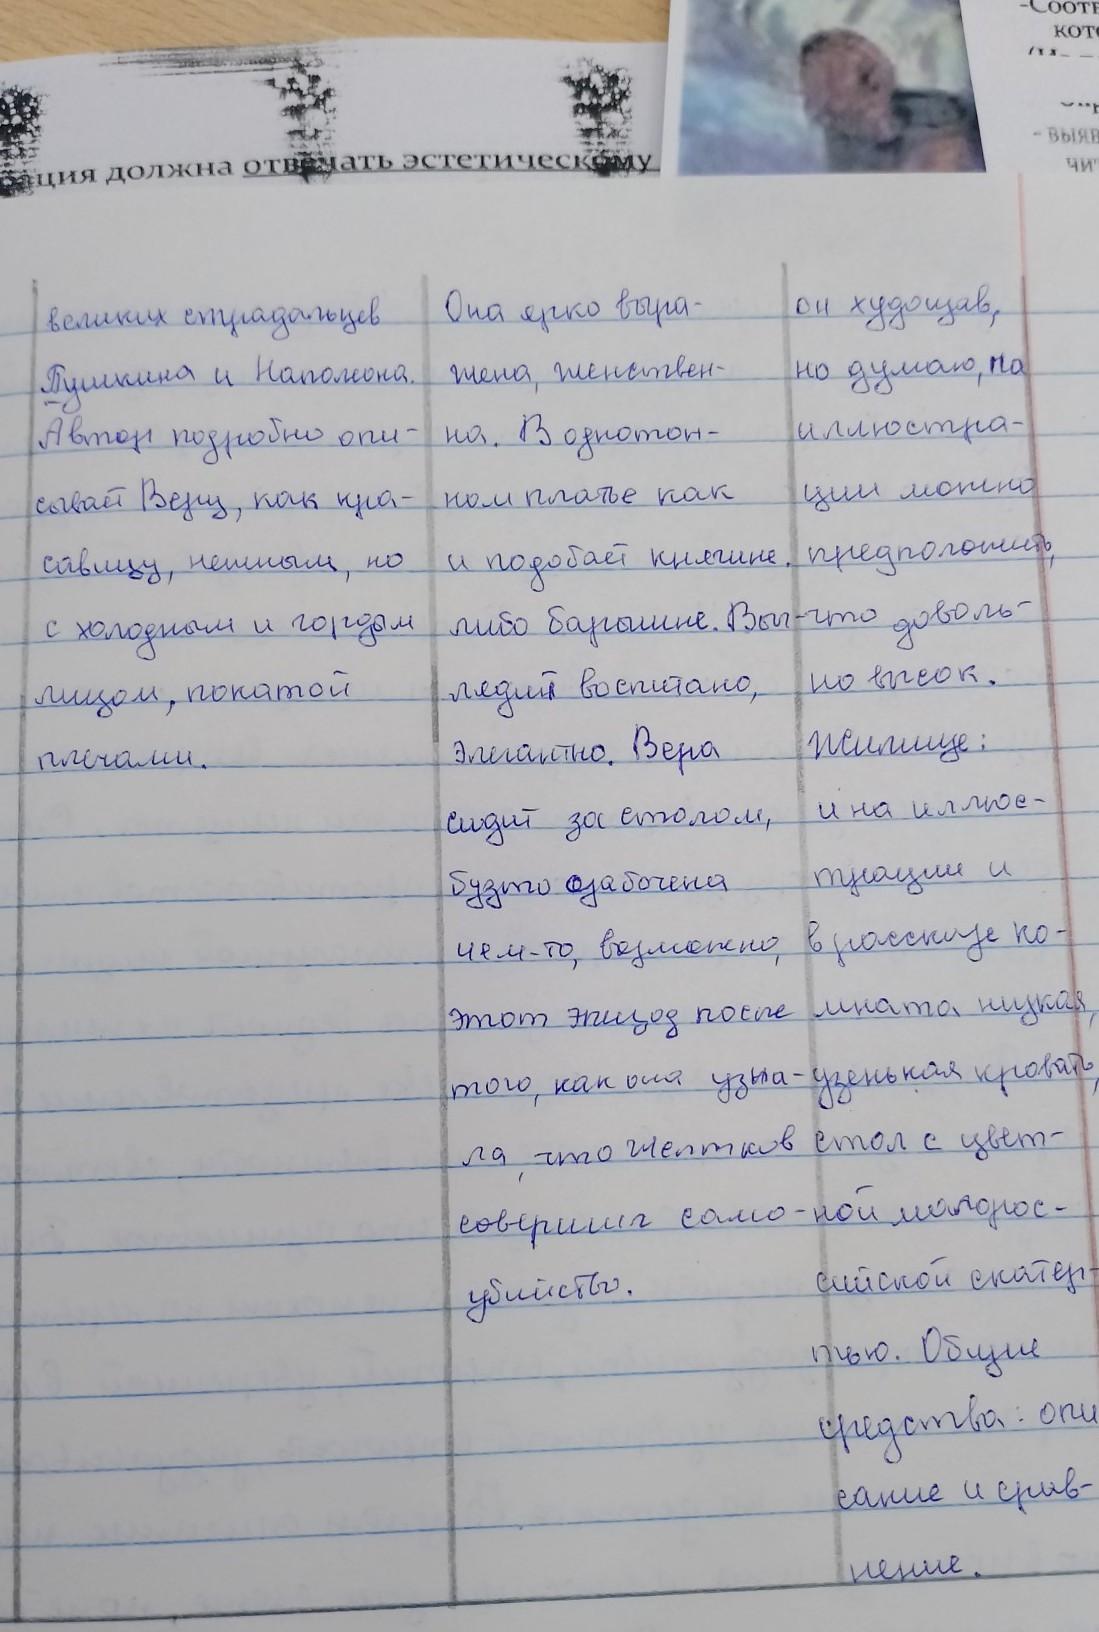 -Соотв
кот
ация должна отвечать эстетическому
- выяв
чит
великих страдальцев
Пушкина и Наполеона.
Автор подробно опи-
сывает Веру, как кра-
савицу, нежным, но
с холодным и гордым
лицом, покатой
плечами.
Она ярко выра-
жена, женствен-
на. В однотон-
ном платье как
и подобает княгине.
либо барышне. Выг-
лядит воспитано,
элегантно. Вера
сидит за столом,
будто озабочена
чем-то, возможно,
этот эпизод после
того, как она узна-
ла, что Желтков
совершил само-
убийство.
он худощав,
но думаю, по
иллюстра-
ции можно
предположить,
что доволь-
но высок.
Жилище:
и на иллюс-
трации и
в рассказе ко-
мната низкая,
узенькая кровать,
стол с цвет-
ной малорос-
сийской скатер-
тью. Общие
средства: опи
сание и срав-
нение.